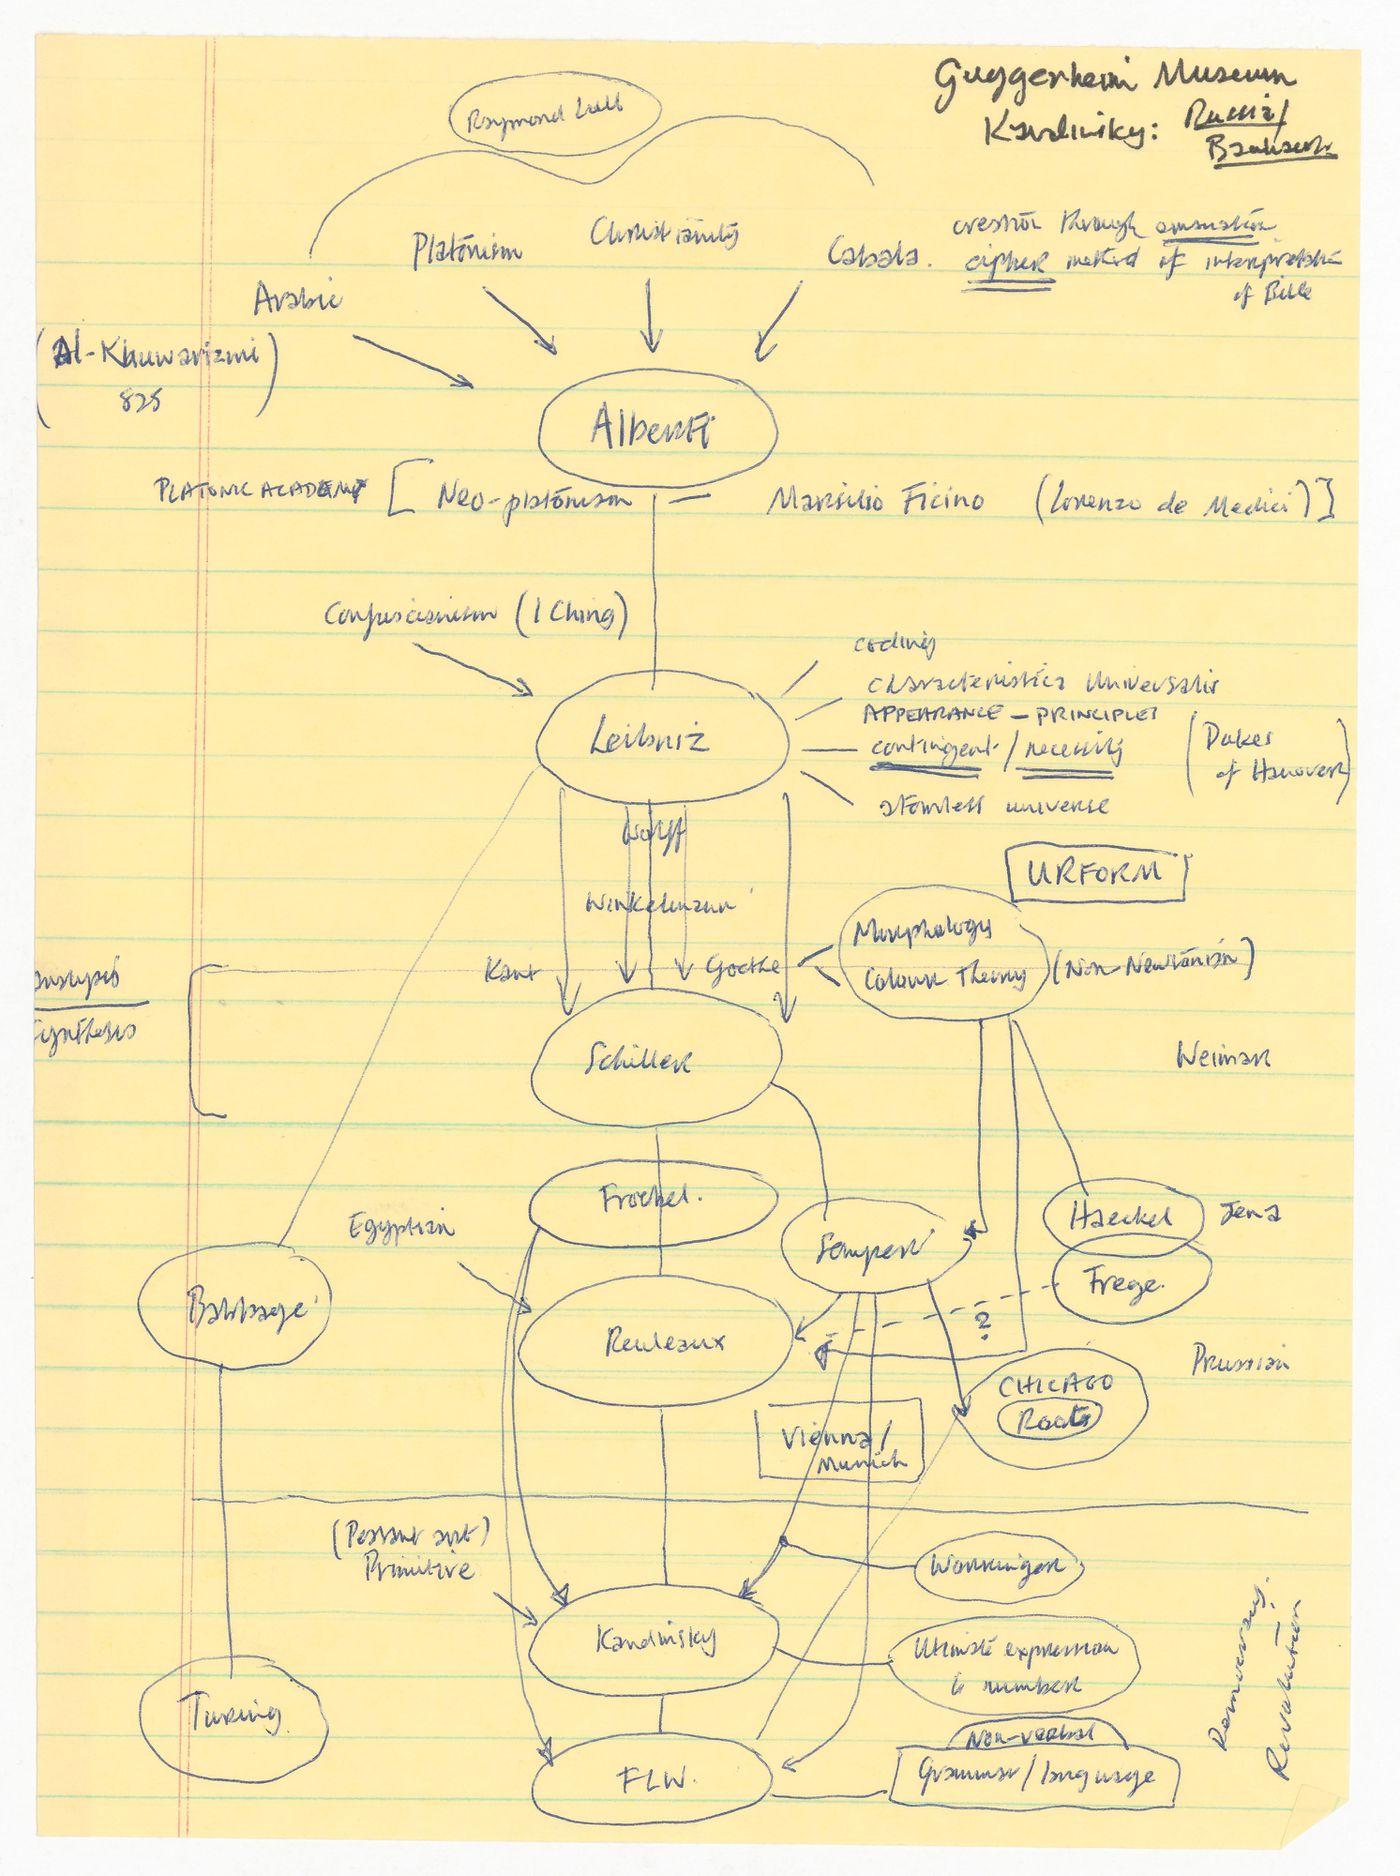 Guggenheim Museum
Kandinsky: Russia/
Bauhaus
Raymond Lull
Platonism
Christianity
Cabala.
creation through emanation
cipher method of interpretation
of Bible
Arabic
(Al-Khuwarizmi)
825
Alberti
PLATONIC ACADEMY [ Neo-platonism — Marsilio Ficino (Lorenzo de Medici) ]
Confucianism (I Ching)
coding
characteristica universalis
APPEARANCE – PRINCIPLES
contingent / necessity
(Dukes
of Hanover)
atomless universe
Leibniz
Wolff
URFORM
Winkelmann
Morphology
Colour Theory (Non-Newtonian)
Kant
Goethe
Synthesis
Schiller
Weimar
Froebel.
Egyptian
Semper
Haeckel
Jena
Frege.
Babbage
Reuleaux
?
Prussian
CHICAGO
Roots
Vienna/
Munich
(Peasant art)
Primitive
Worringer
Kandinsky
Ultimate expression
is number
Democracy.
Revolution
Turing
Non-verbal
Grammar/language
FLW.